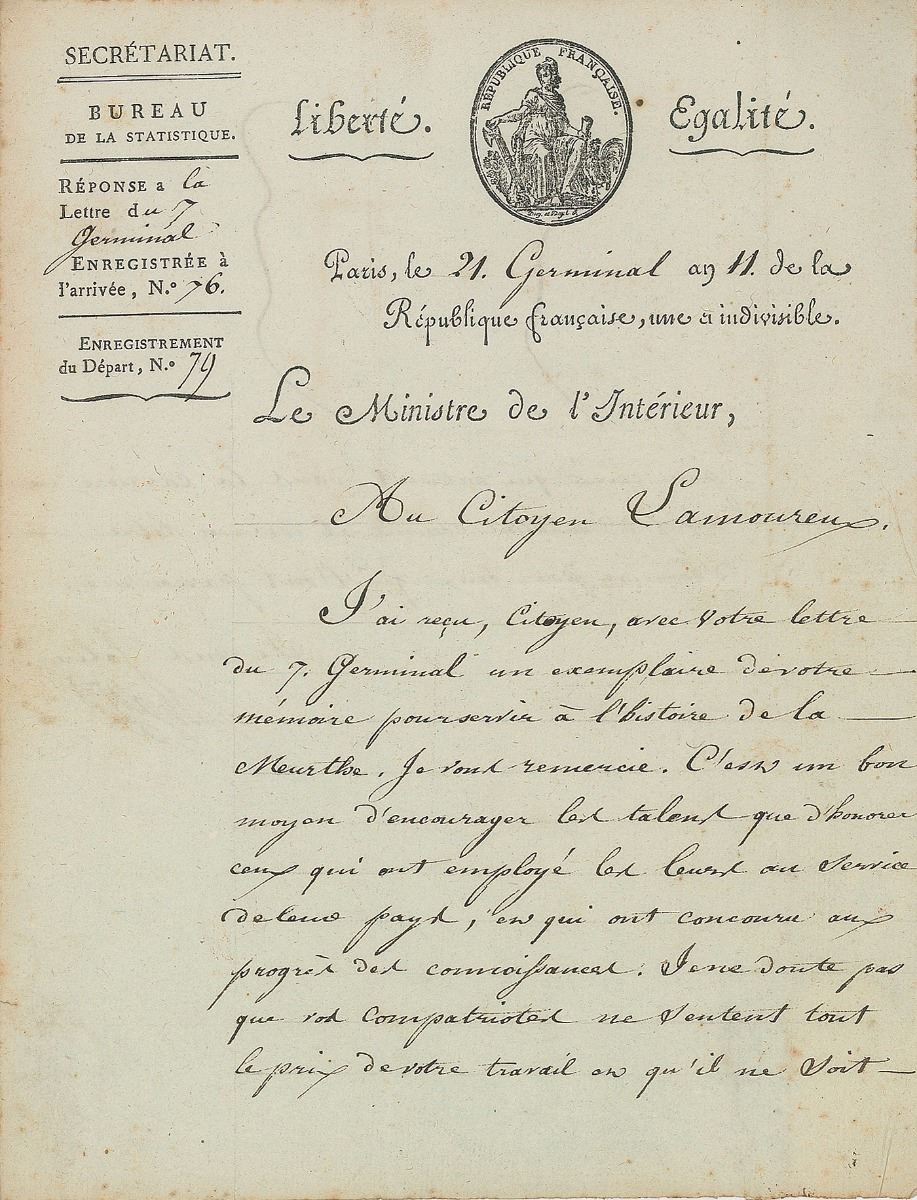 SECRÉTARIAT.
BUREAU
DE LA STATISTIQUE.
RÉPONSE a la
Lettre du 7
Germinal
ENREGISTRÉE à
l'arrivée, N.º 76.
ENREGISTREMENT
du Départ, N.º 79
Liberté.
RÉPUBLIQUE FRANÇAISE.
Egalité.
Paris, le 21. Germinal an 11. de la
République française, une et indivisible.
Le Ministre de l'Intérieur,
Au Citoyen Lamoureux.
J'ai reçu, Citoyen, avec votre lettre
du 7. Germinal un exemplaire de votre
mémoire pour servir à l'histoire de la
Meurthe. Je vous remercie. C'est un bon
moyen d'encourager les talens que d'honorer
ceux qui ont employé les leurs au service
de leur pays, et qui ont concouru aux
progrès des connoissances. Je ne doute pas
que vos compatriotes ne sentent tout
le prix de votre travail et qu'il ne soit